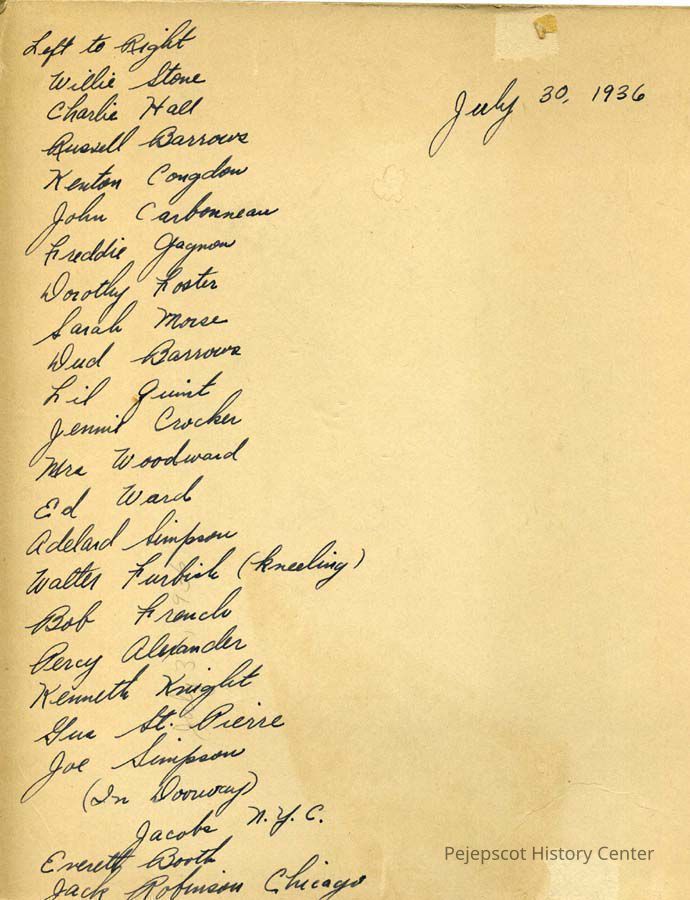 Left to Right
July 30, 1936
Willie Stone
Charlie Hall
Russell Barrows
Kenton Congdon
John Carbonneau
Freddie Gagnon
Dorothy Foster
Sarah Morse
Dud Barrows
Lil Quint
Jennie Crocker
Mrs Woodward
Ed Ward
Adelard Simpson
Walter Furbish (kneeling)
Bob French
Percy Alexander
Kenneth Knight
Gus St. Pierre
Joe Simpson
(In Doorway)
Jacobs N.Y.C.
Everett Booth
Jack Robinson Chicago
Pejepscot History Center